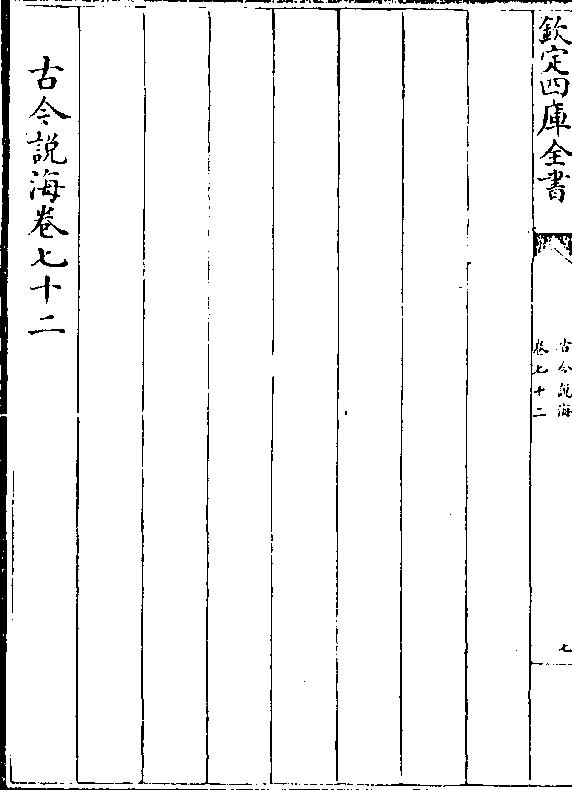 欽定四庫全書
古今說海
卷七十二
七
古今說海卷七十二